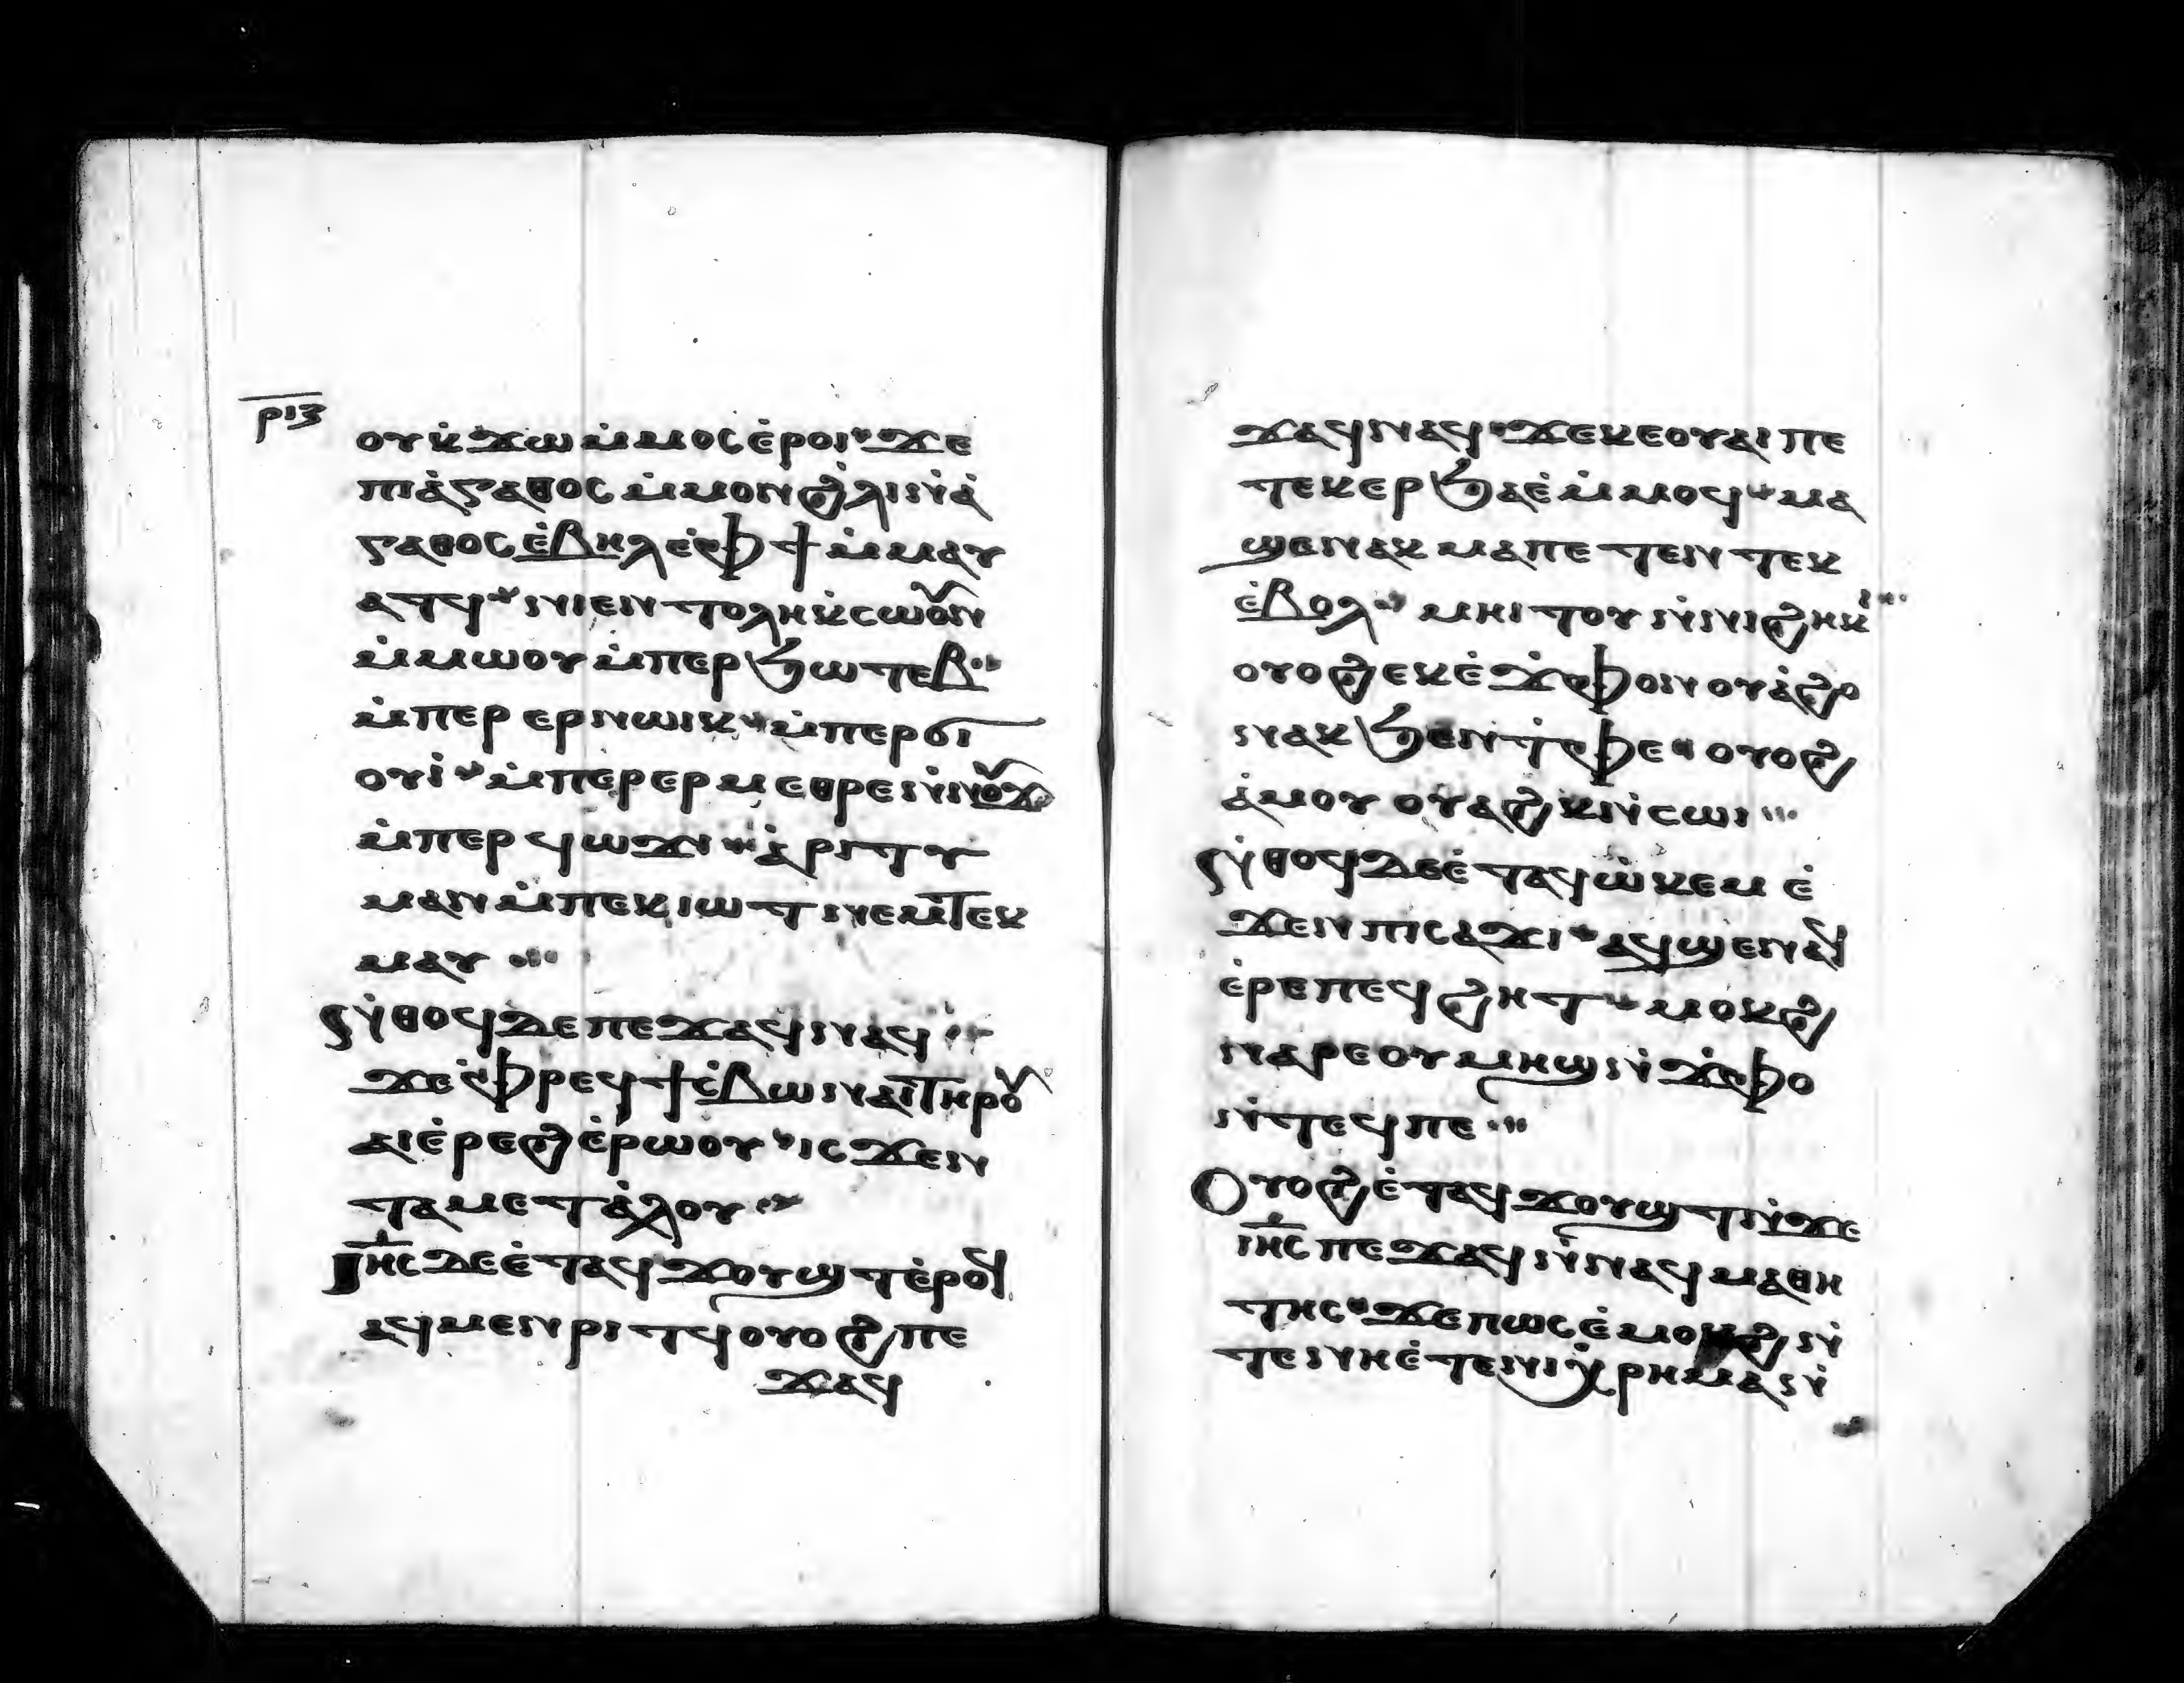 ⲣⲓⲍ
ⲟⲩⲕ̇ϫⲱ ⲙ̇ⲙⲟⲥ ⲉ̇ⲣⲟⲓ ϫⲉ
ⲡⲓⲁ̇ⲅⲁⲑⲟⲥ ⲙ̇ⲙⲟⲛ ϩ̇ⲗⲓ ⲛ̇ⲁ̇
ⲅⲁⲑⲟⲥ ⲉ̇ⲃⲏⲗ ⲉ̇ⲫϯ ⲙ̇ⲙⲁⲩ
ⲁⲧϥ ⲛⲓⲉⲛⲧⲟⲗⲏ ⲕ̇ⲥⲱⲟⲩⲛ
ⲙ̇ⲙⲱⲟⲩ ⲙ̇ⲡⲉⲣϧⲱⲧⲉⲃ
ⲙ̇ⲡⲉⲣ ⲉⲣⲛⲱⲓⲕ ⲙ̇ⲡⲉⲣϭⲓ
ⲟⲩⲓ̇ ⲙ̇ⲡⲉⲣⲉⲣⲙⲉⲑⲣⲉ ⲛ̇ⲛⲟⲩϫ
ⲙ̇ⲡⲉⲣϥⲱϫⲓ ⲁ̇ⲣⲓⲧⲩ
ⲙⲁⲛ ⲙ̇ⲡⲉⲕⲓⲱⲧ ⲛⲉⲙⲧⲉⲕ
ⲙⲁⲩ
ⲛ̇ⲑⲟϥ ⲇⲉ ⲡⲉϫⲁϥ ⲛⲁϥ
ϫⲉ ⲫ̇ⲣⲉϥϯⲥ̇ⲃⲱ ⲛⲁⲓ ⲧⲏⲣⲟⲩ
ⲁⲓⲉ̇ⲣⲉϩ ⲉ̇ⲣⲱⲟⲩ ⲓⲥϫⲉⲛ
ⲧⲁⲙⲉⲧⲁ̇ⲗⲟⲩ
ⲓⲏⲥ ⲇⲉ ⲉ̇ⲧⲁϥϫⲟⲩϣⲧ ⲉ̇ⲣⲟϥ
ⲁϥⲙⲉⲛⲣⲓⲧϥ ⲟⲩⲟϩ ⲡⲉ
ϫⲁϥ
ϫⲁϥ ⲛⲁϥ ϫⲉ ⲕⲉⲟⲩⲁⲓ ⲡⲉ
ⲧⲉⲕⲉⲣϧⲁⲉ̇ ⲙ̇ⲙⲟϥ ⲙⲁ
ϣⲉⲛⲁⲕ ⲙⲁ ⲡⲉⲧⲉⲛⲧⲉⲕ
ⲉ̇ⲃⲟⲗ ⲙⲏⲓⲧⲟⲩ ⲛ̇ⲛⲓϩⲏⲕⲓ
ⲟⲩⲟϩ ⲉⲕⲉ̇ϫ̇ⲫⲟ ⲛⲟⲩⲁ̇ϩⲟ
ⲛⲁⲕ ϧⲉⲛ ⲧ̇ⲫⲉ ⲟⲩⲟϩ
ⲁ̇ⲙⲟⲩ ⲟⲩⲁϩⲕ ⲛ̇ⲥⲱⲓ
ⲛ̇ⲑⲟϥ ⲇⲉ ⲉ̇ⲧⲁϥⲱ̇ⲕⲉⲙ ⲉ̇
ϫⲉⲛ ⲡⲓⲥⲁϫⲓ ⲁϥϣⲉⲛⲁϥ
ⲉ̇ⲣⲉ ⲡⲉϥϩⲏⲧ ⲙⲟⲕϩ
ⲛⲁⲣⲉ ⲟⲩⲙⲏϣ ⲛ̇ϫ̇ⲫⲟ
ⲛ̇ⲧⲉϥ ⲡⲉ
ⲟⲩⲟϩ ⲉ̇ⲧⲁϥϫⲟⲩϣⲧ ⲛ̇ϫⲉ
ⲓⲏⲥ ⲡⲉϫⲁϥ ⲛ̇ⲛⲁϥⲙⲁⲑⲏ
ⲧⲏⲥ ϫⲉ ⲡⲱⲥ ⲉ̇ⲙⲟⲕϩ ⲛ̇
ⲧⲉ ⲛⲏ ⲉ̇ⲧⲉ ⲛⲓⲭ̇ⲣⲏⲙⲁ ⲛ̇